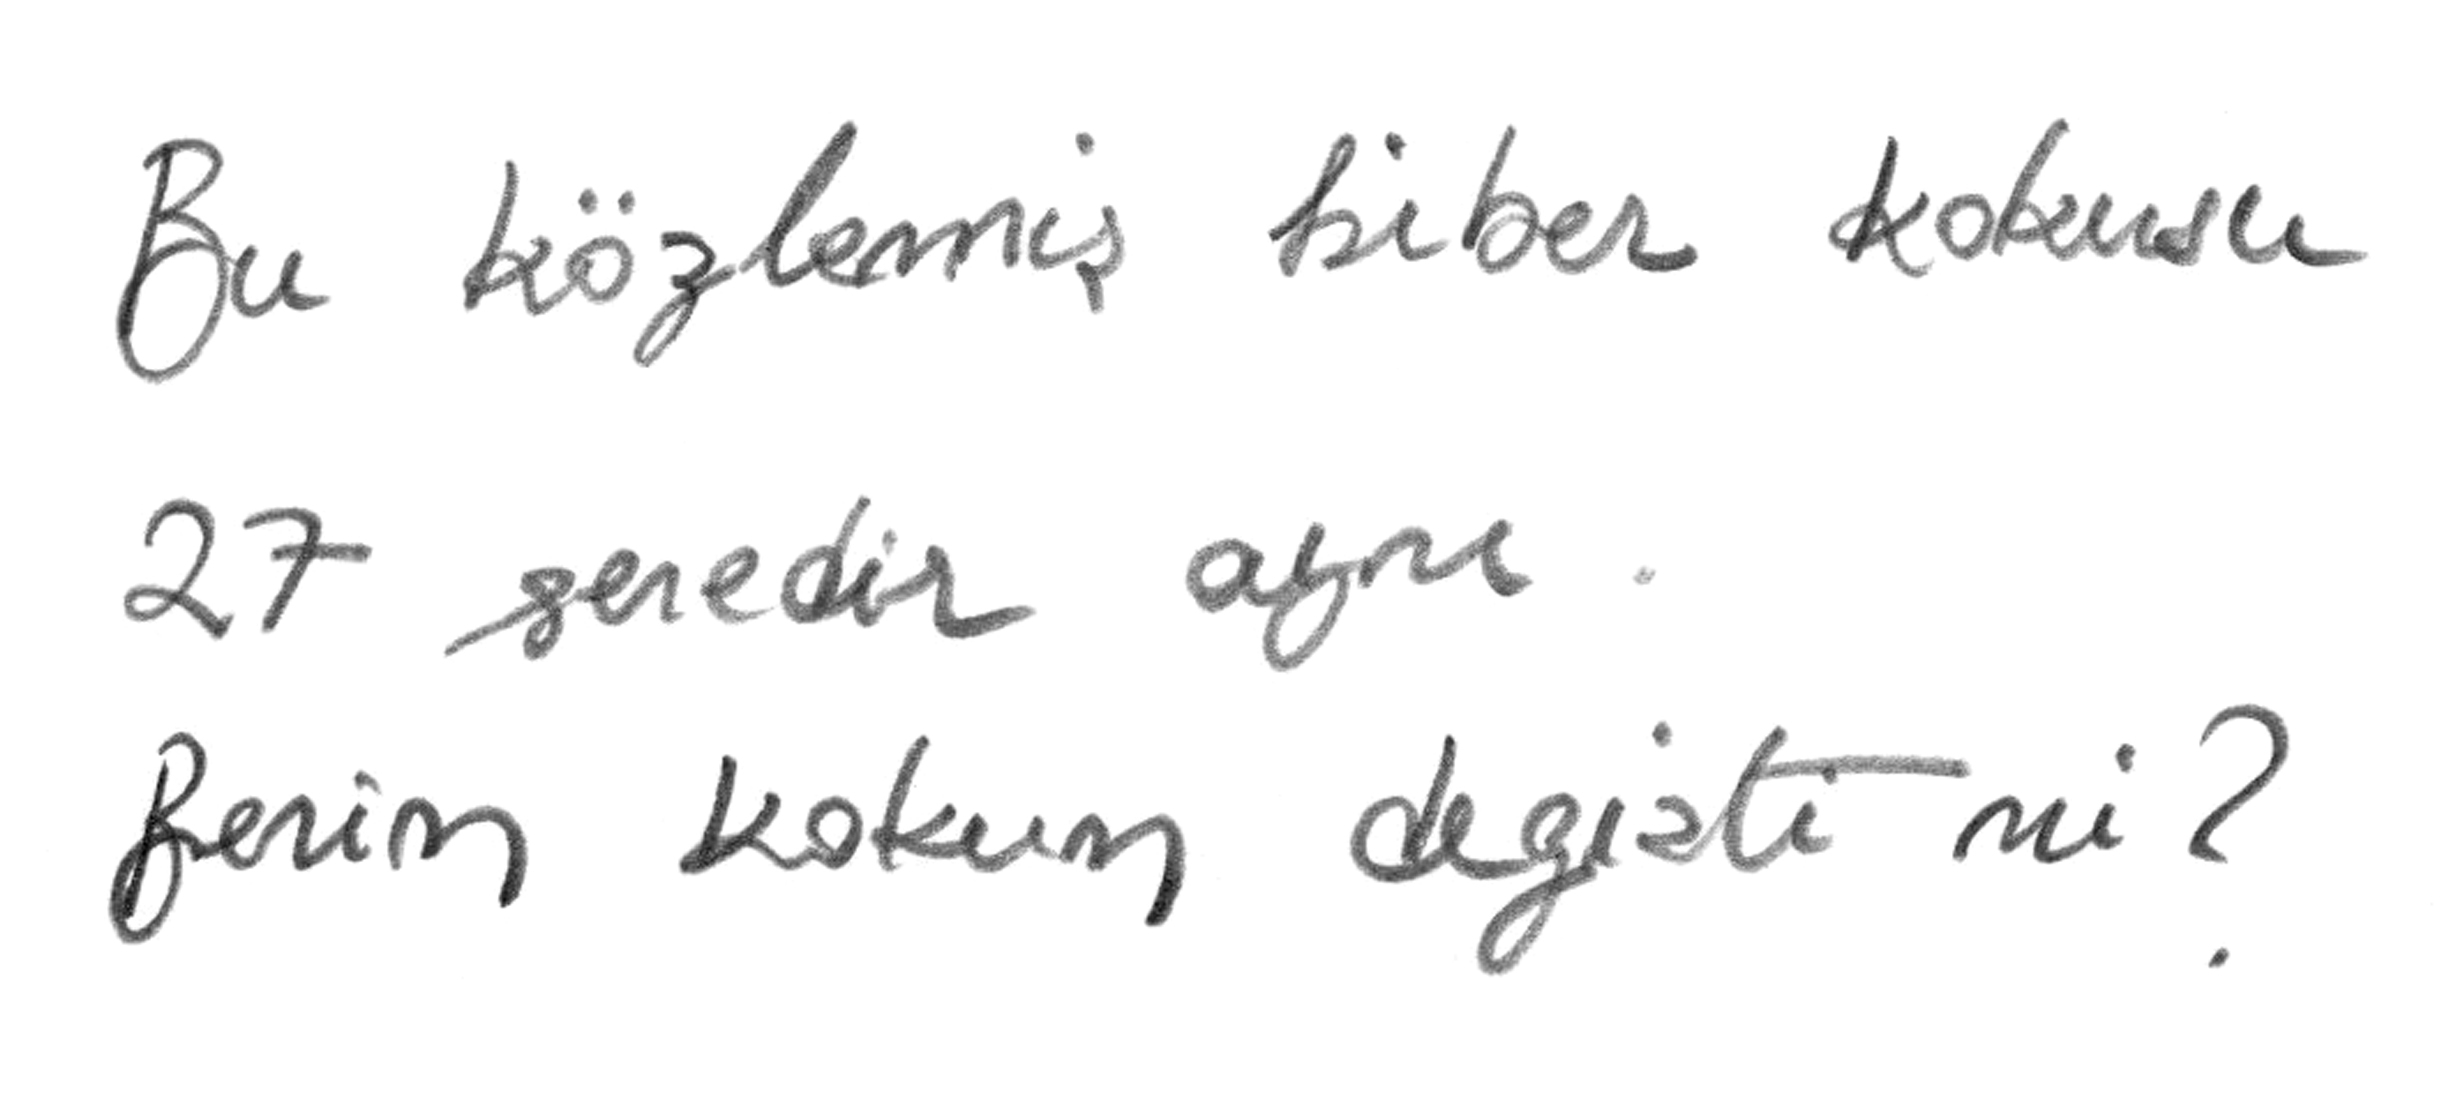 Bu közlemiş biber kokusu
27 senedir aynı.
Benim kokum degişti mi?